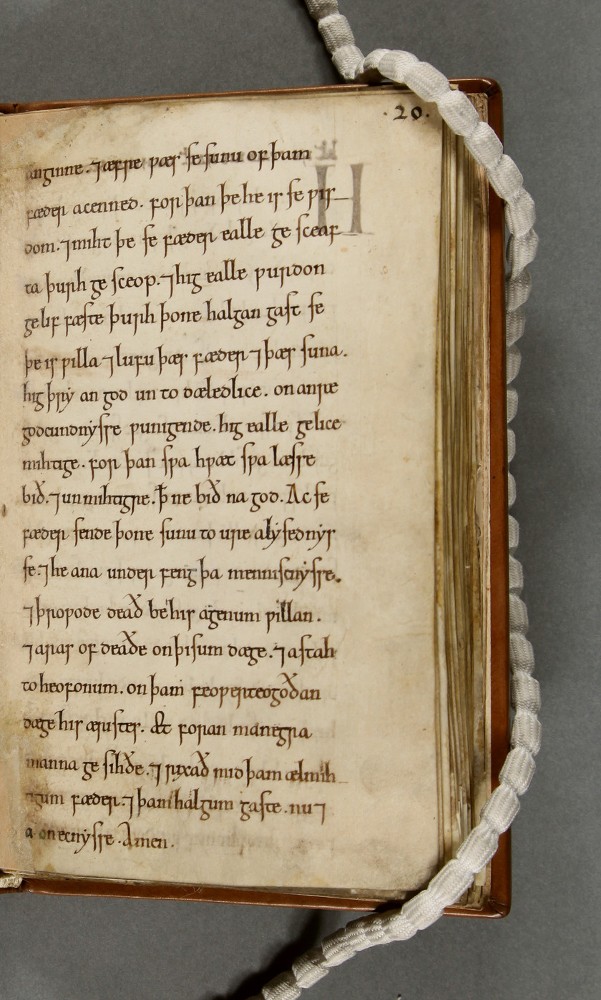 ·20.
anginne. ⁊æfre ƿæs se sunu of þam
fæder acenned. for þan þe he is se ƿis
dom. ⁊miht þe se fæder ealle ge sceaf
ta þurh ge sceop. ⁊hig ealle ƿurdon
gelif fæste þurh þone halgan gast se
þe is ƿilla ⁊lufu þæs fæder ⁊þæs suna.
hig þrẏ an god un to dæledlice. on anre
godcundnẏsse ƿunigende. hig ealle gelice
mihtige. for þan sƿa hƿæt sƿa læsse
bið. ⁊unmihtigre. ꝥ ne bið na god. Ac se
fæder sende þone sunu to ure alẏsednẏs
se. ⁊he ana under feng þa menniscnẏsse.
⁊þroƿode deað be his agenum ƿillan.
⁊aras of deaðe on þisum dæge. ⁊astah
to heofonum. on þam feoƿerteogoðan
dæge his æristes. æt foran manegra
manna ge sihðe. ⁊rixað mid þam ælmih
tigum fæder. ⁊þam halgum gaste. nu ⁊
a on ecnẏsse. Amen.